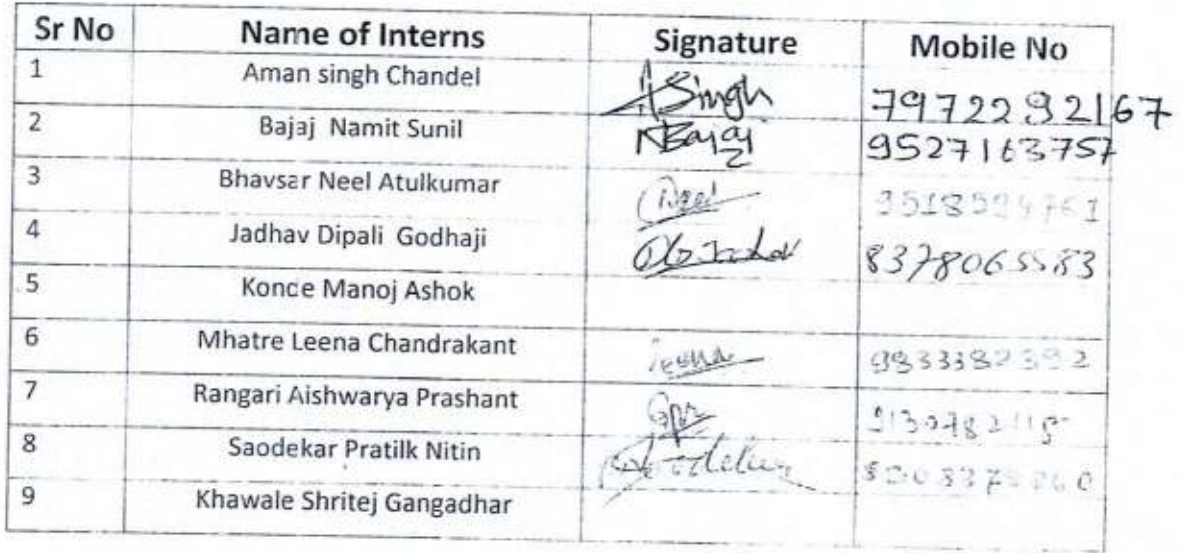 Sr No Name of Interns Signature Mobile No
1 Aman singh Chandel ASingh 7972292167
2 Bajaj Namit Sunil NBajaj 9527163757
3 Bhavsar Neel Atulkumar Neel
4 Jadhav Dipali Godhaji 8378065583
5 Konde Manoj Ashok
6 Mhatre Leena Chandrakant Leena 9833382392
7 Rangari Aishwarya Prashant
8 Saodekar Pratilk Nitin
9 Khawale Shritej Gangadhar